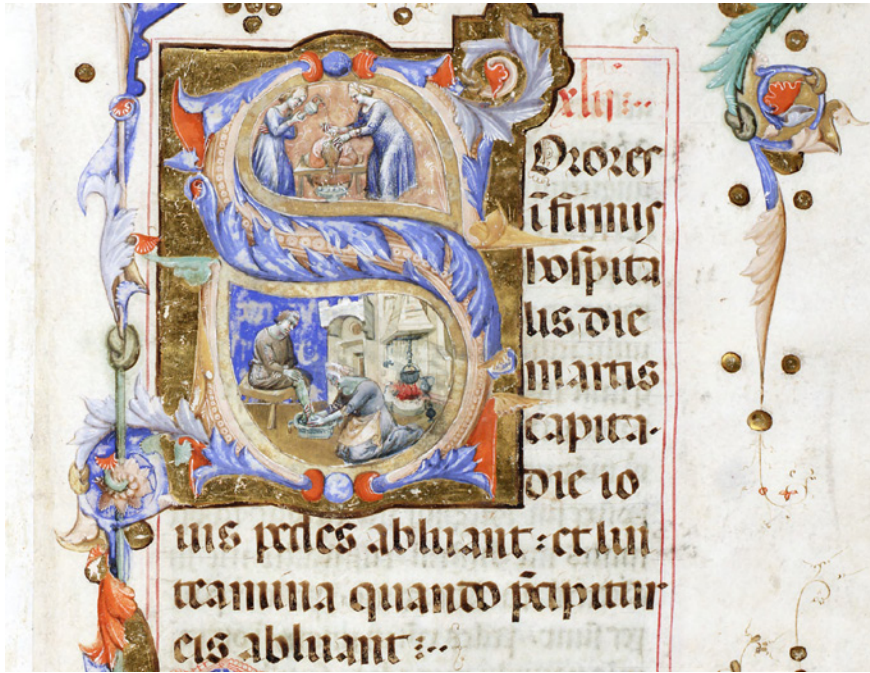 xlij:··
Sorores
īfirmis
hospita
lis die
martis
capita·
die io
uis pedes abluant : et lin
teamina quando p̄cipitur
eis abluant :··